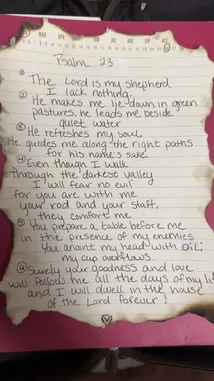 Psalm 23
① The Lord is my shepherd
I lack nothing.
② He makes me lie down in green
pastures. he leads me beside
quiet water
③ He refreshes my soul.
He guides me along the right paths
for his name's sake
④ Even though I walk
through the darkest valley
I will fear no evil
for you are with me
your rod and your staff,
they comfort me.
⑤ You prepare a table before me
in the presence of my enemies
You anoint my head with oil;
my cup overflows.
⑥ Surely your goodness and love
will follow me all the days of my
and I will dwell in the house
of the Lord forever!